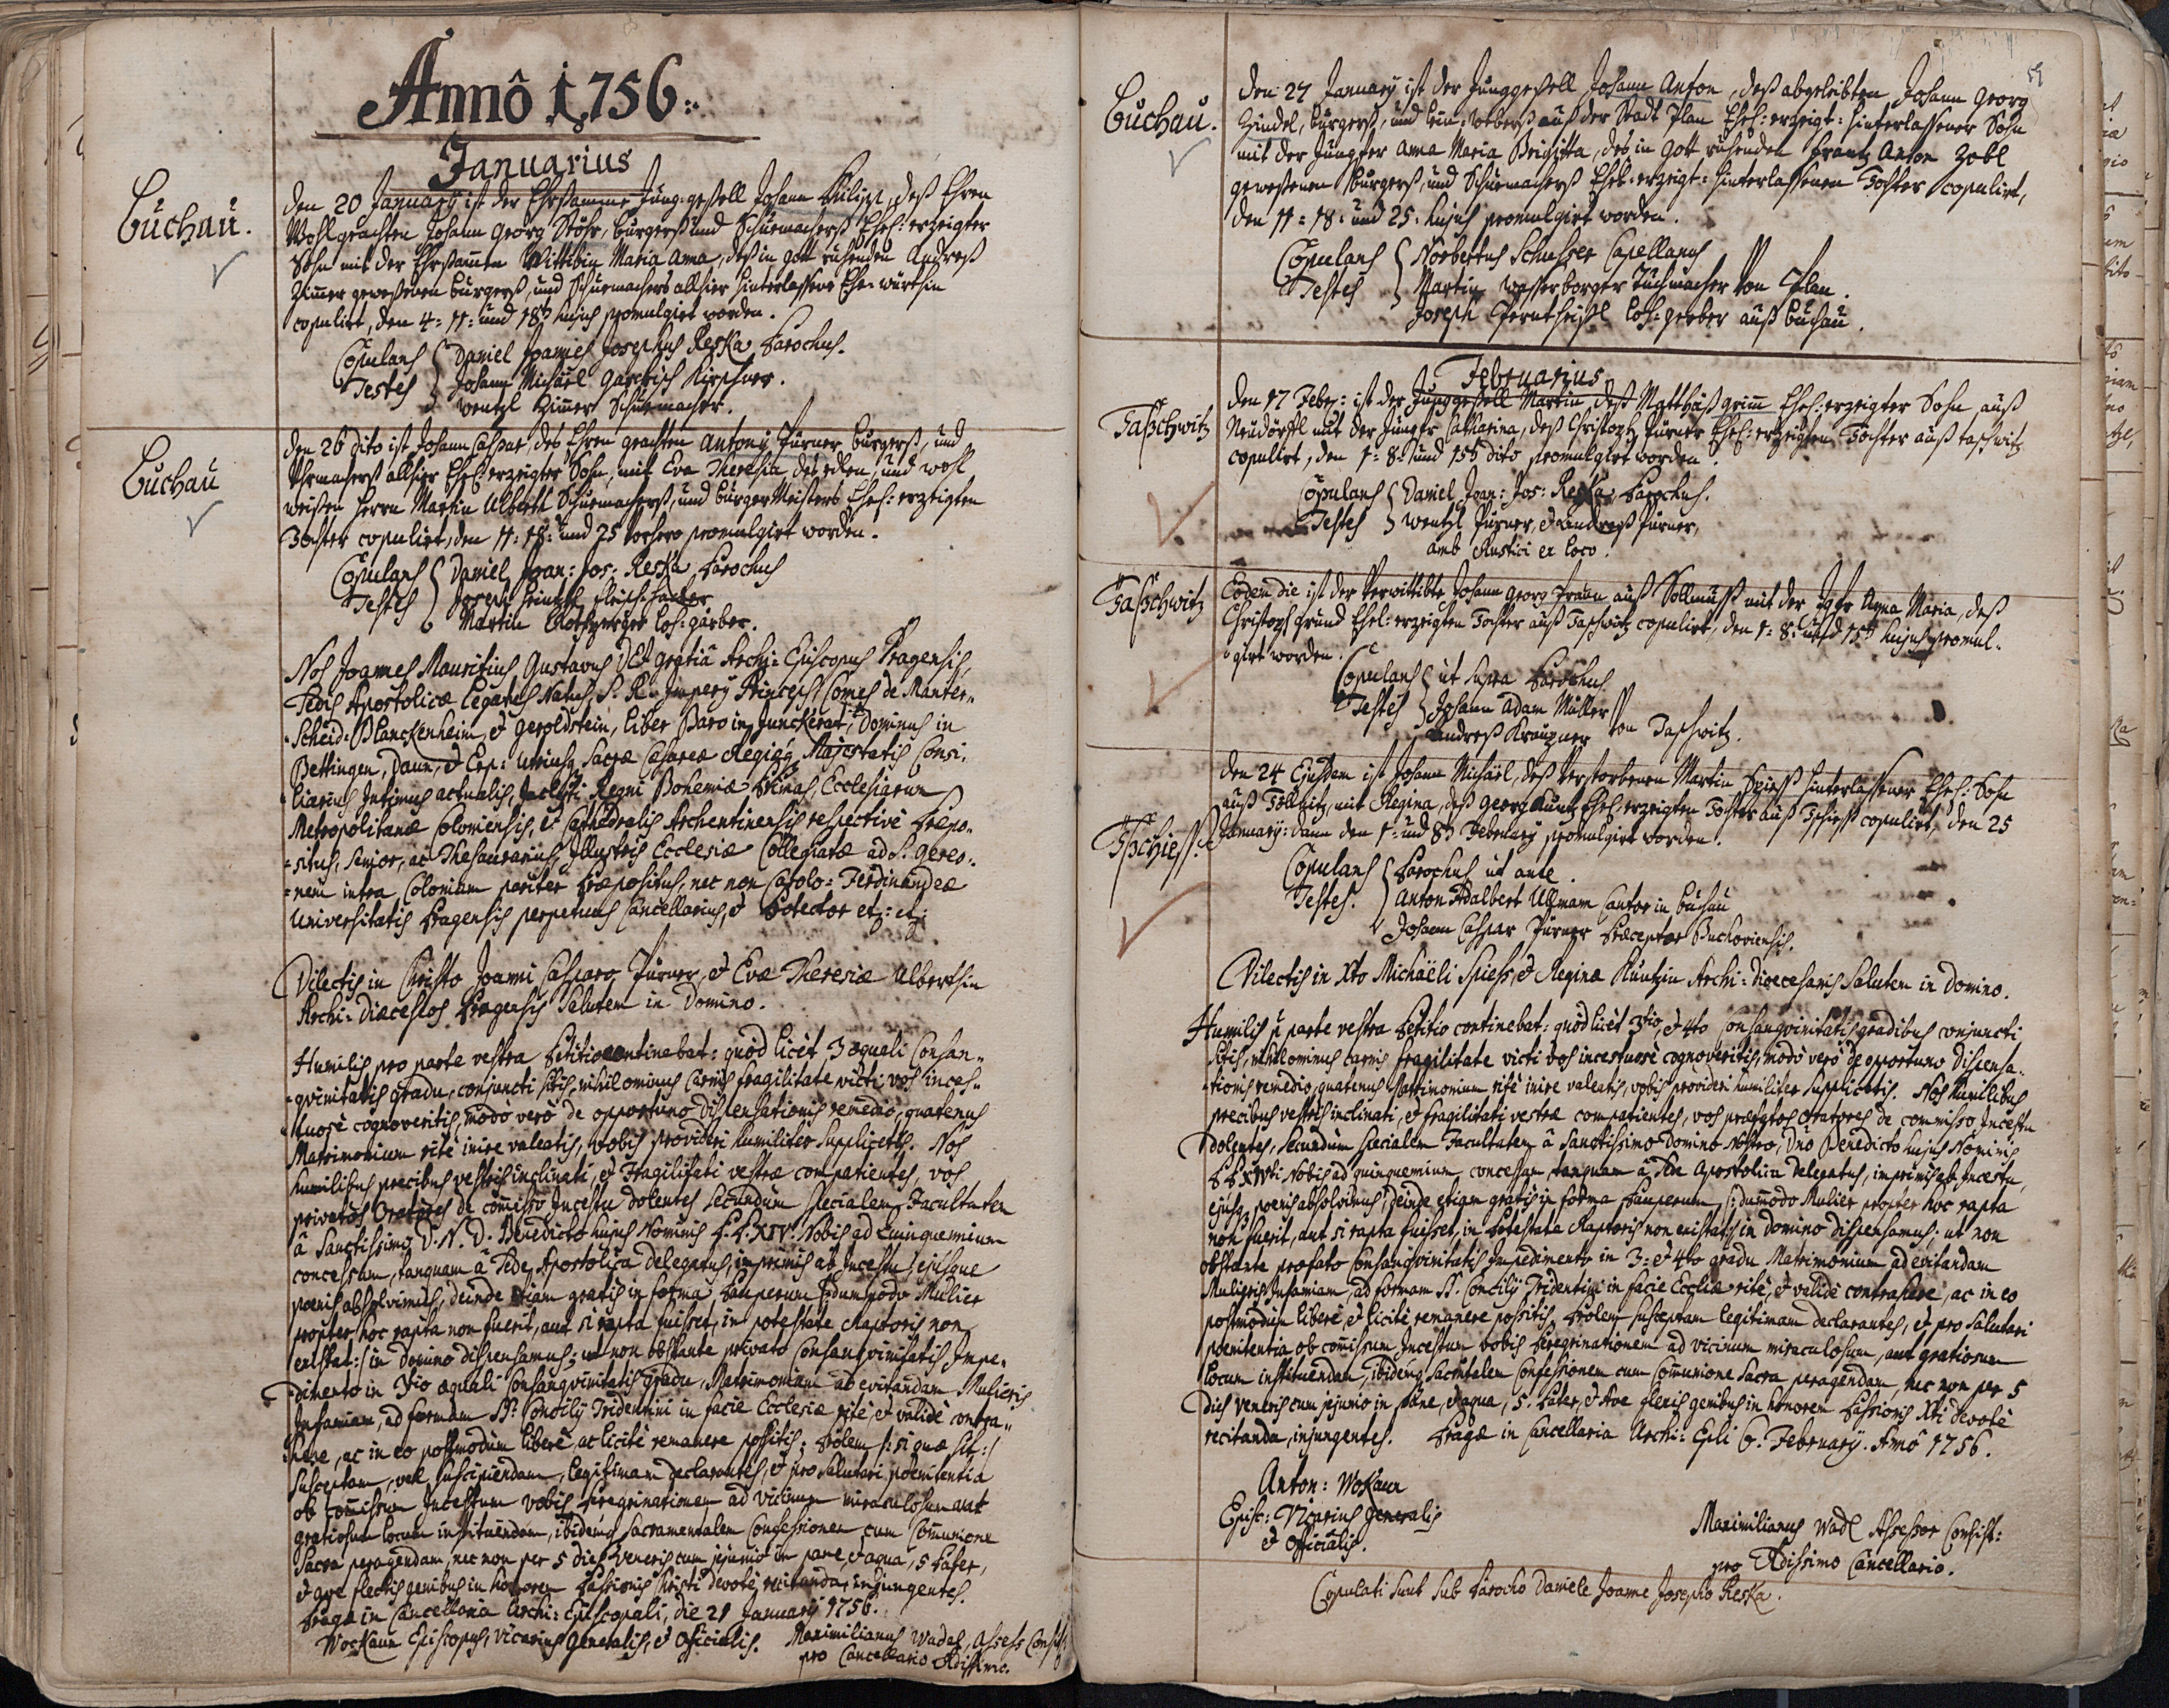 Anno 1756:
Januarius
Buchau.
Den 20 January ist der Ehrsamme Jung-gesell Johann Philipp, deß Ehren
Wohlgeachten Johann Georg Stöhr, burgerß und Schuemacherß Ehel: erzeigter
Sohn mit der Ehrsamen Wittibin Maria Anna, deß in gott ruhenden Andreß
Zimer gewesenen burgerß, und Schuemachers allhier hinterlassene Ehe-würthin
copulirt, den 4= 11= und 18t hujus promulgirt worden.
Copulans { Daniel Joannes Josephus Reska Parochus.
Testes } Johann Michael Kirschner.
Wentzl Zimer Schuemacher.
Buchau
Den 26 dito ist Johann Caspar, des Ehren geachten Antony Turner burgerß, und
Uhrmacherß allhier Ehel: erzeigter Sohn, mit Eva Theresia, des edlen, und wohl
weisen Herrn Martin Alberth Schuemacherß, und burgerMeisters Ehel: erzeigten
Tochter copulirt, den 11= 18= und 25 promulgirt worden.
Copulans { Daniel Joan: Jos: Reska Parochus
Testes } Joseph Heintzl fleisch-hacker
Martin loh-gärber.
Nos Joannes Mauritius Gustavus DEI gratiâ Archi-Episcopus Pragensis,
Sedis Apostolicæ Legatus Natus, S. R. Impery Princeps Comes de Manter-
-Scheid-Blanckenheim, et Geroldstein, Liber Baro in Junckerat, Dominus in
Bettingen, Daun, et Erp: utriusq Sacræ Cæsareæ Regiæq Majestatis Consi-
liarius Intimus actualis, Inclyti Regni Bohemiæ Primas, Ecclesiarum
Metropolitanæ Coloniensis, et Cathedralis Archentinensis respectivè Præpo-
-situs, Senior, ac Thesaurarius, Illustris Ecclesiæ Collegiatæ ad S. Gereo-
-nem intra Coloniam pariter Præpositus, nec non Carolo-Ferdinandeæ
Universitatis Pragensis perpetuus Cancellarius, et Protector etz: etz:
Dilectis in Christo Joanni Casparo Turner, et Evæ Theresiæ Alberthin
Archi-Diæcesios Pragensis Salutem in Domino.
Humilis pro parte vestra Petitio continebat: quòd licèt 3 æquali Consan-
-gvinitatis gradu conjuncti sitis, nihilominus Carnis fragilitate victi vos inces-
-tuosè cognoveritis, modò verò de opportuno dispensationis remedio, quatenus
Matrimonium ritè inire valeatis, vobis provideri humiliter supplicetis. Nos
humilibus precibus vestris inclinati, et Fragilitati vestræ compatientes, vos
privatos Oratores de comisso Incestu dolentes secundùm specialem Facultatem
â Sanctissimo D. N. D. Benedicto hujus Nominis P. P. XIV. Nobis ad Quinquennium
concessam, tanquam â Sede Apostolica delegatus, imprimis ab Incestu, ejúsque
pœnis absolvimus, deinde etiam gratis in forma Pauperum |: dummodo Mulier
propter hoc rapta non fuerit, aut si rapta fuisset, in potestate Raptoris non
existat :| in Domino dispensamus; ut non obstante privato Consangvinitatis Impe-
-dimento in 3tio æquali Consangvinitatis gradu, Matrimonium ad evitandam Mulieris
Infamiam, ad formam St: Concily Tridentini in facie Ecclesiæ ritè, et validè contra-
here, ac in eo postmodùm liberè, ac licitè remanere possitis; Prolem |: si quæ sit :|
susceptam, vel suscipiendam, legitimam declarantes, et pro salutari pœnitentia
ob comissum Incestum vobis Peregrinationem ad vicinum miraculosum aut
gratiosum Locum instituendam, ibidemq sacramentalem Confessionem cum Comunione
Sacra peragendam, nec non per 5 dies Veneris cum jejunio in pane, et aqua, 5 Pater,
et Ave flectis genibus in honorem Passionis Christi devotè recitanda, injungentes.
Pragæ in Cancellaria Archi-Episcopali, die 21 January 1756.
Wockaun Episcopus, Vicarius Generalis, et Officialis. Maximilianus Wadel, Assess Consist:
pro Cancellario Rdissimo.
59
Buchau.
Den 27 January ist der Junggesell Johann Anton, deß abgeleibten Johann Georg
Zindel, burgerß, und lein-weberß auß der Stadt Plan Ehel: erzeigt-hinterlassener Sohn
mit der Jungfer Anna Maria Brigitta, des in gott ruhenden Frantz Anton Zobl
gewesenen burgerß, und Schuemacherß Ehel-erzeigt-hinterlassenen Tochter copulirt,
den 11= 18= und 25. hujus promulgirt worden.
Copulans { Norbertus Schusser Capellanus
Testes } Martin Wasserborger Tuchmacher von Plan.
Joseph loh-gerber auß buchau.
Februarius
Taßchwitz
Den 17 Febr: ist der Junggesell Martin, deß Matthäß grimm Ehel: erzeigter Sohn auß
Neudörffl mit der Jungfr Catharina, deß Christoph Turner Ehel-erzeigten Tochter auß taschwitz
copulirt, den 1= 8= und 15t dito promulgirt worden.
Copulans { Daniel Joan: Jos: Reska Parochus.
Testes } Wentzl Turner, et Andreß Turner,
amb Rustici ex loco.
Taßchwitz
Eodem die ist der Verwittibte Johann Georg auß Sollmuß mit der Jgfr Anna Maria, deß
Christoph grund Ehel-erzeigten Tochter auß Taschwitz copulirt, den 1= 8= und 15t hujus promul-
girt worden.
Copulans { ut supra Parochus
Testes } Johann Adam Müller
Andreß von Taschwitz.
Tßchieß.
Den 24 Ejusdem ist Johann Michäel, deß verstorbenen Martin Spieß hinterlassener Ehel: Sohn
auß Töllnitz, mit Regina, deß Georg Kuntz Ehel-erzeigten Tochter auß Tschieß copulirt, den 25
January: dann den 1= und 8t February promulgirt worden.
Copulans { Parochus ut ante.
Testes. } Anton Adalbert Ullmann Cantor in buchau
Johann Caspar Turner Præceptor Buchoviensis.
Dilectis in Xto Michäeli Spiess, et Reginæ Kuntzin Archi-Diæcesanis Salutem in Domino.
Humilis p parte vestra Petitio continebat: quòd licèt 3tio, et 4to Consangvinitatis gradibus conjuncti
sitis, nihilominus carnis fragilitate victi vos incestuosè cognoveritis, modò verò de opportuno Dispensa-
-tionis remedio, quatenus Matrimonium ritè inire valeatis, vobis provideri humiliter supplicetis. Nos humilibus
precibus vestris inclinati, et fragilitati vestræ compatientes, vos præfatos Oratores de commisso Incestu
dolentes, secundùm specialem Facultatem â Sanctissimo Domino Nostro, Dno Benedicto hujus Nominis
P P XIVti Nobis ad quinquennium concessam, tanquam â Sede Apostolica Delegatus, imprimis ab Incestu,
ejusq pœnis absolvimus, deinde etiam gratis in forma Pauperum |: dummodo Mulier propter hoc rapta
non fuerit, aut si rapta fuisset, in Potestate Raptoris non existat :| in Domino dispensamus; ut non
obstante præfato Consangvinitatis Impedimento in 3= et 4to gradu Matrimonium ad evitandam
Mulieris Infamiam, ad formam St. Concily Tridentini in facie Eccliæ ritè, et validè contrahere, ac in eo
postmodùm liberè, et licitè remanere possitis, Prolem susceptam legitimam declarantes, et pro salutari
pœnitentia ob comissum Incestum vobis Peregrinationem ad vicinum miraculosum, aut gratiosum
Locum instituendam, ibidemq sacramtalem Confessionem cum Comunione Sacra peragendam, nec non per 5
dies Veneris cum jejunio in pane, et aqua, 5. Pater, et Ave flexis genibus in honorem Passionis Xti devotè
recitanda, injungentes. Pragæ in Cancellaria Archi-Epli 6. February. Anno 1756.
Anton: Wokaun
Episc: Vicarius Generalis
et Officialis.
Maximilianus Wadl Assessor Consist:
pro Rdissimo Cancellario.
Copulati sunt sub Parocho Daniele Joanne Josepho Reska.